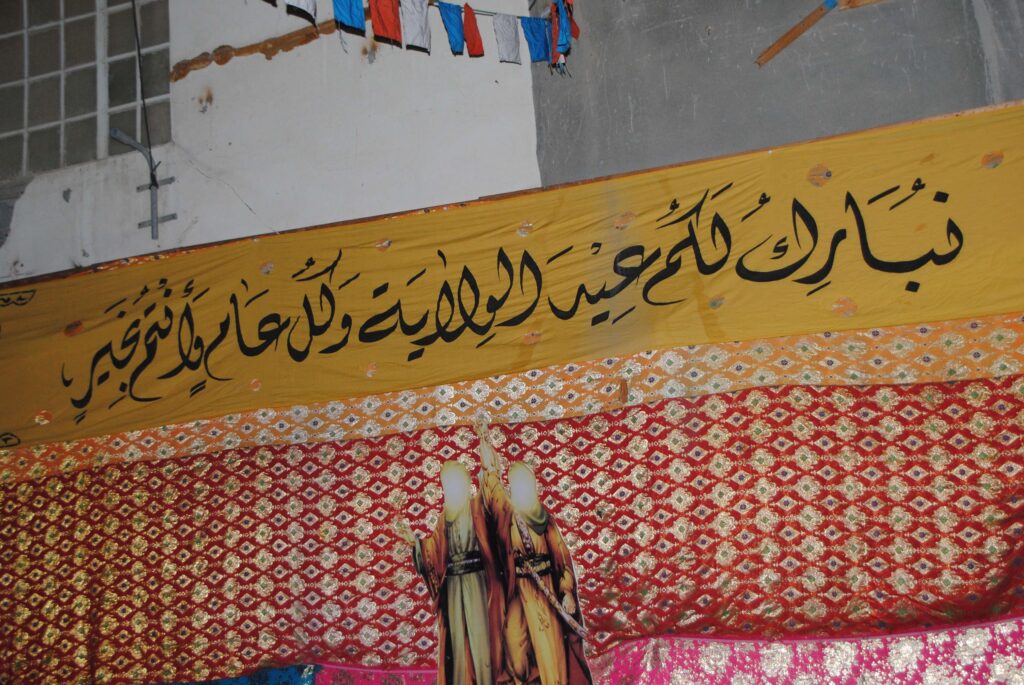 نُبَارِكُ لَكُم عِيْدَ الوِلايَة وَكُل عَام وَأَنتُم بِخَيرٍ